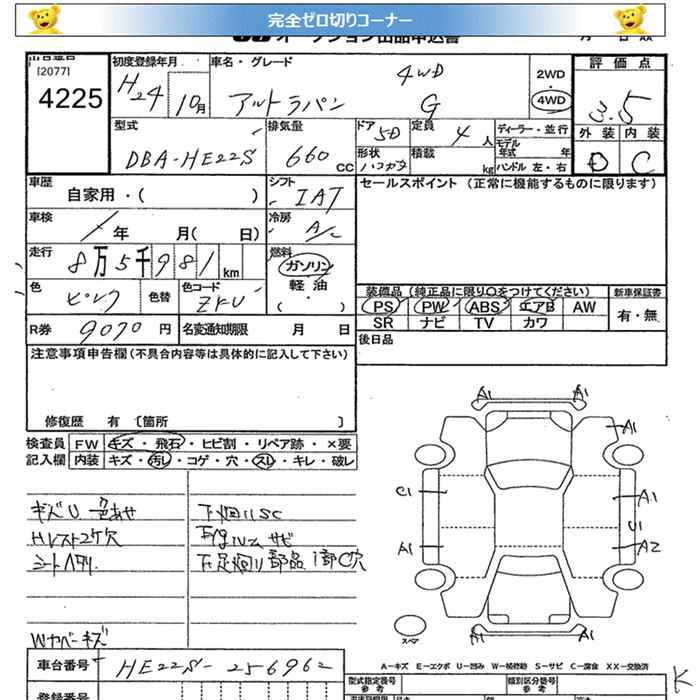 完全ゼロ切りコーナー
オークション出品申込書
出品番号
[2077]
4225
初度登録年月
H24 10月
車名・グレード
アルトラパン 4WD G
2WD
4WD
評価点
3.5
外装 内装
D C
型式
DBA-HE22S
排気量
660 CC
ドア
5D
定員
4人
ディーラー・並行
モデル年式 年
ハンドル 左・右
形状
積載
kg
車歴
自家用・( )
シフト
IAT
セールスポイント (正常に機能するものに限ります)
車検
年 月( 日)
冷房
A/C
走行
8万5千981 km
燃料
ガソリン
軽油
( )
色
ピンク
色替
色コード
ZKU
装備品 (純正品に限り○をつけてください)
PS PW ABS エアB AW
SR ナビ TV カワ
新車保証書
有・無
R券 9070円
名変通知期限 月 日
後日品
注意事項申告欄(不具合内容等は具体的に記入して下さい)
修復歴 有 〔箇所 〕
検査員 記入欄
FW キズ・飛石・ヒビ割・リペア跡・×要
内装 キズ・汚レ・コゲ・穴・スレ・キレ・破レ
キズU 色あせ
シートヘタリ
下廻りSC
サビ
Wカバーキズ
A1 A1
A1
C1
A1
U1
A1
A2
A1 A1
スペア
A-キズ E-エクボ U-凹み W-補修跡 S-サビ C-腐食 XX-交換済
車台番号 HE22S-256962
型式指定番号
参考
類別区分番号
参考
登録番号